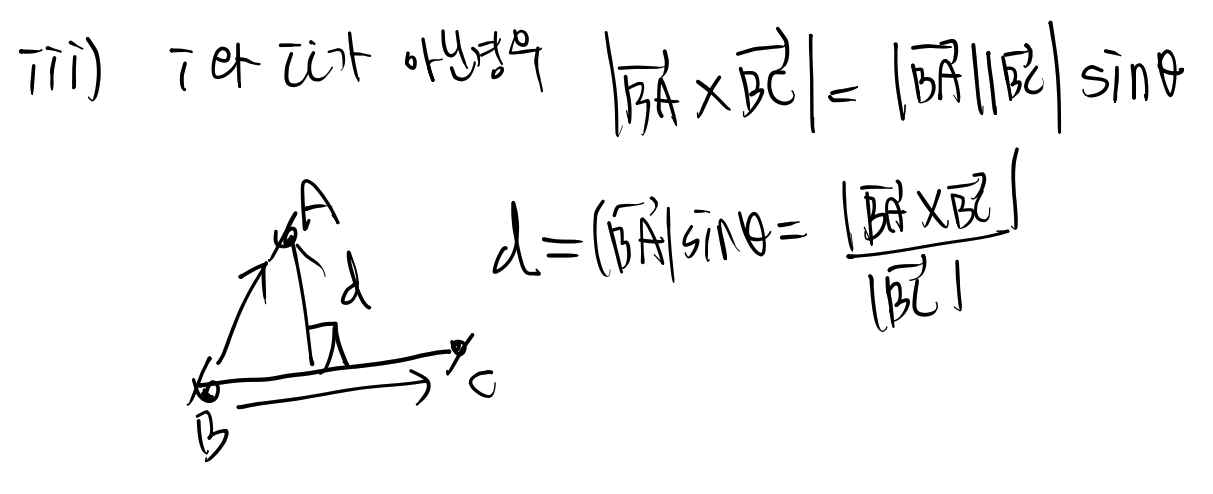 iii) i 와 ii가 아닌경우 |BA⃗ × BC⃗| = |BA⃗||BC⃗| sinθ
d = |BA⃗| sinθ = |BA⃗ × BC⃗| / |BC⃗|
A
d
B
C